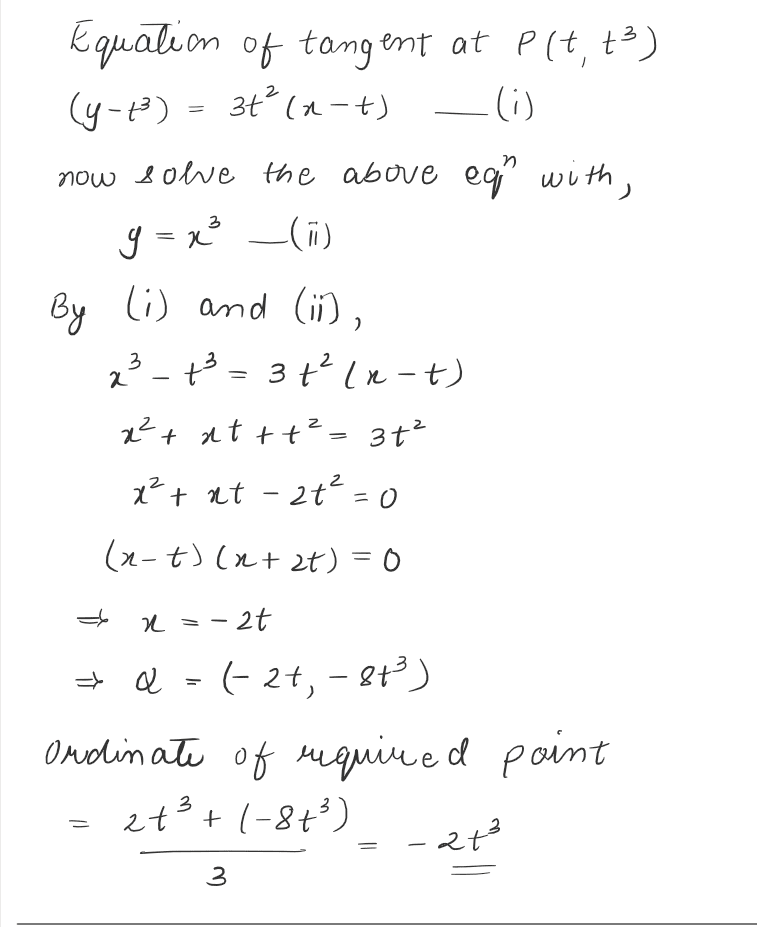 Equation of tangent at P(t, t³)
(y-t³) = 3t²(x-t) —(i)
now solve the above eqⁿ with,
y = x³ —(ii)
By (i) and (ii),
x³ - t³ = 3t²(x-t)
x² + xt + t² = 3t²
x² + xt - 2t² = 0
(x-t)(x+2t) = 0
⇒ x = -2t
⇒ Q = (-2t, -8t³)
Ordinate of required point
= (2t³ + (-8t³))/3 = -2t³